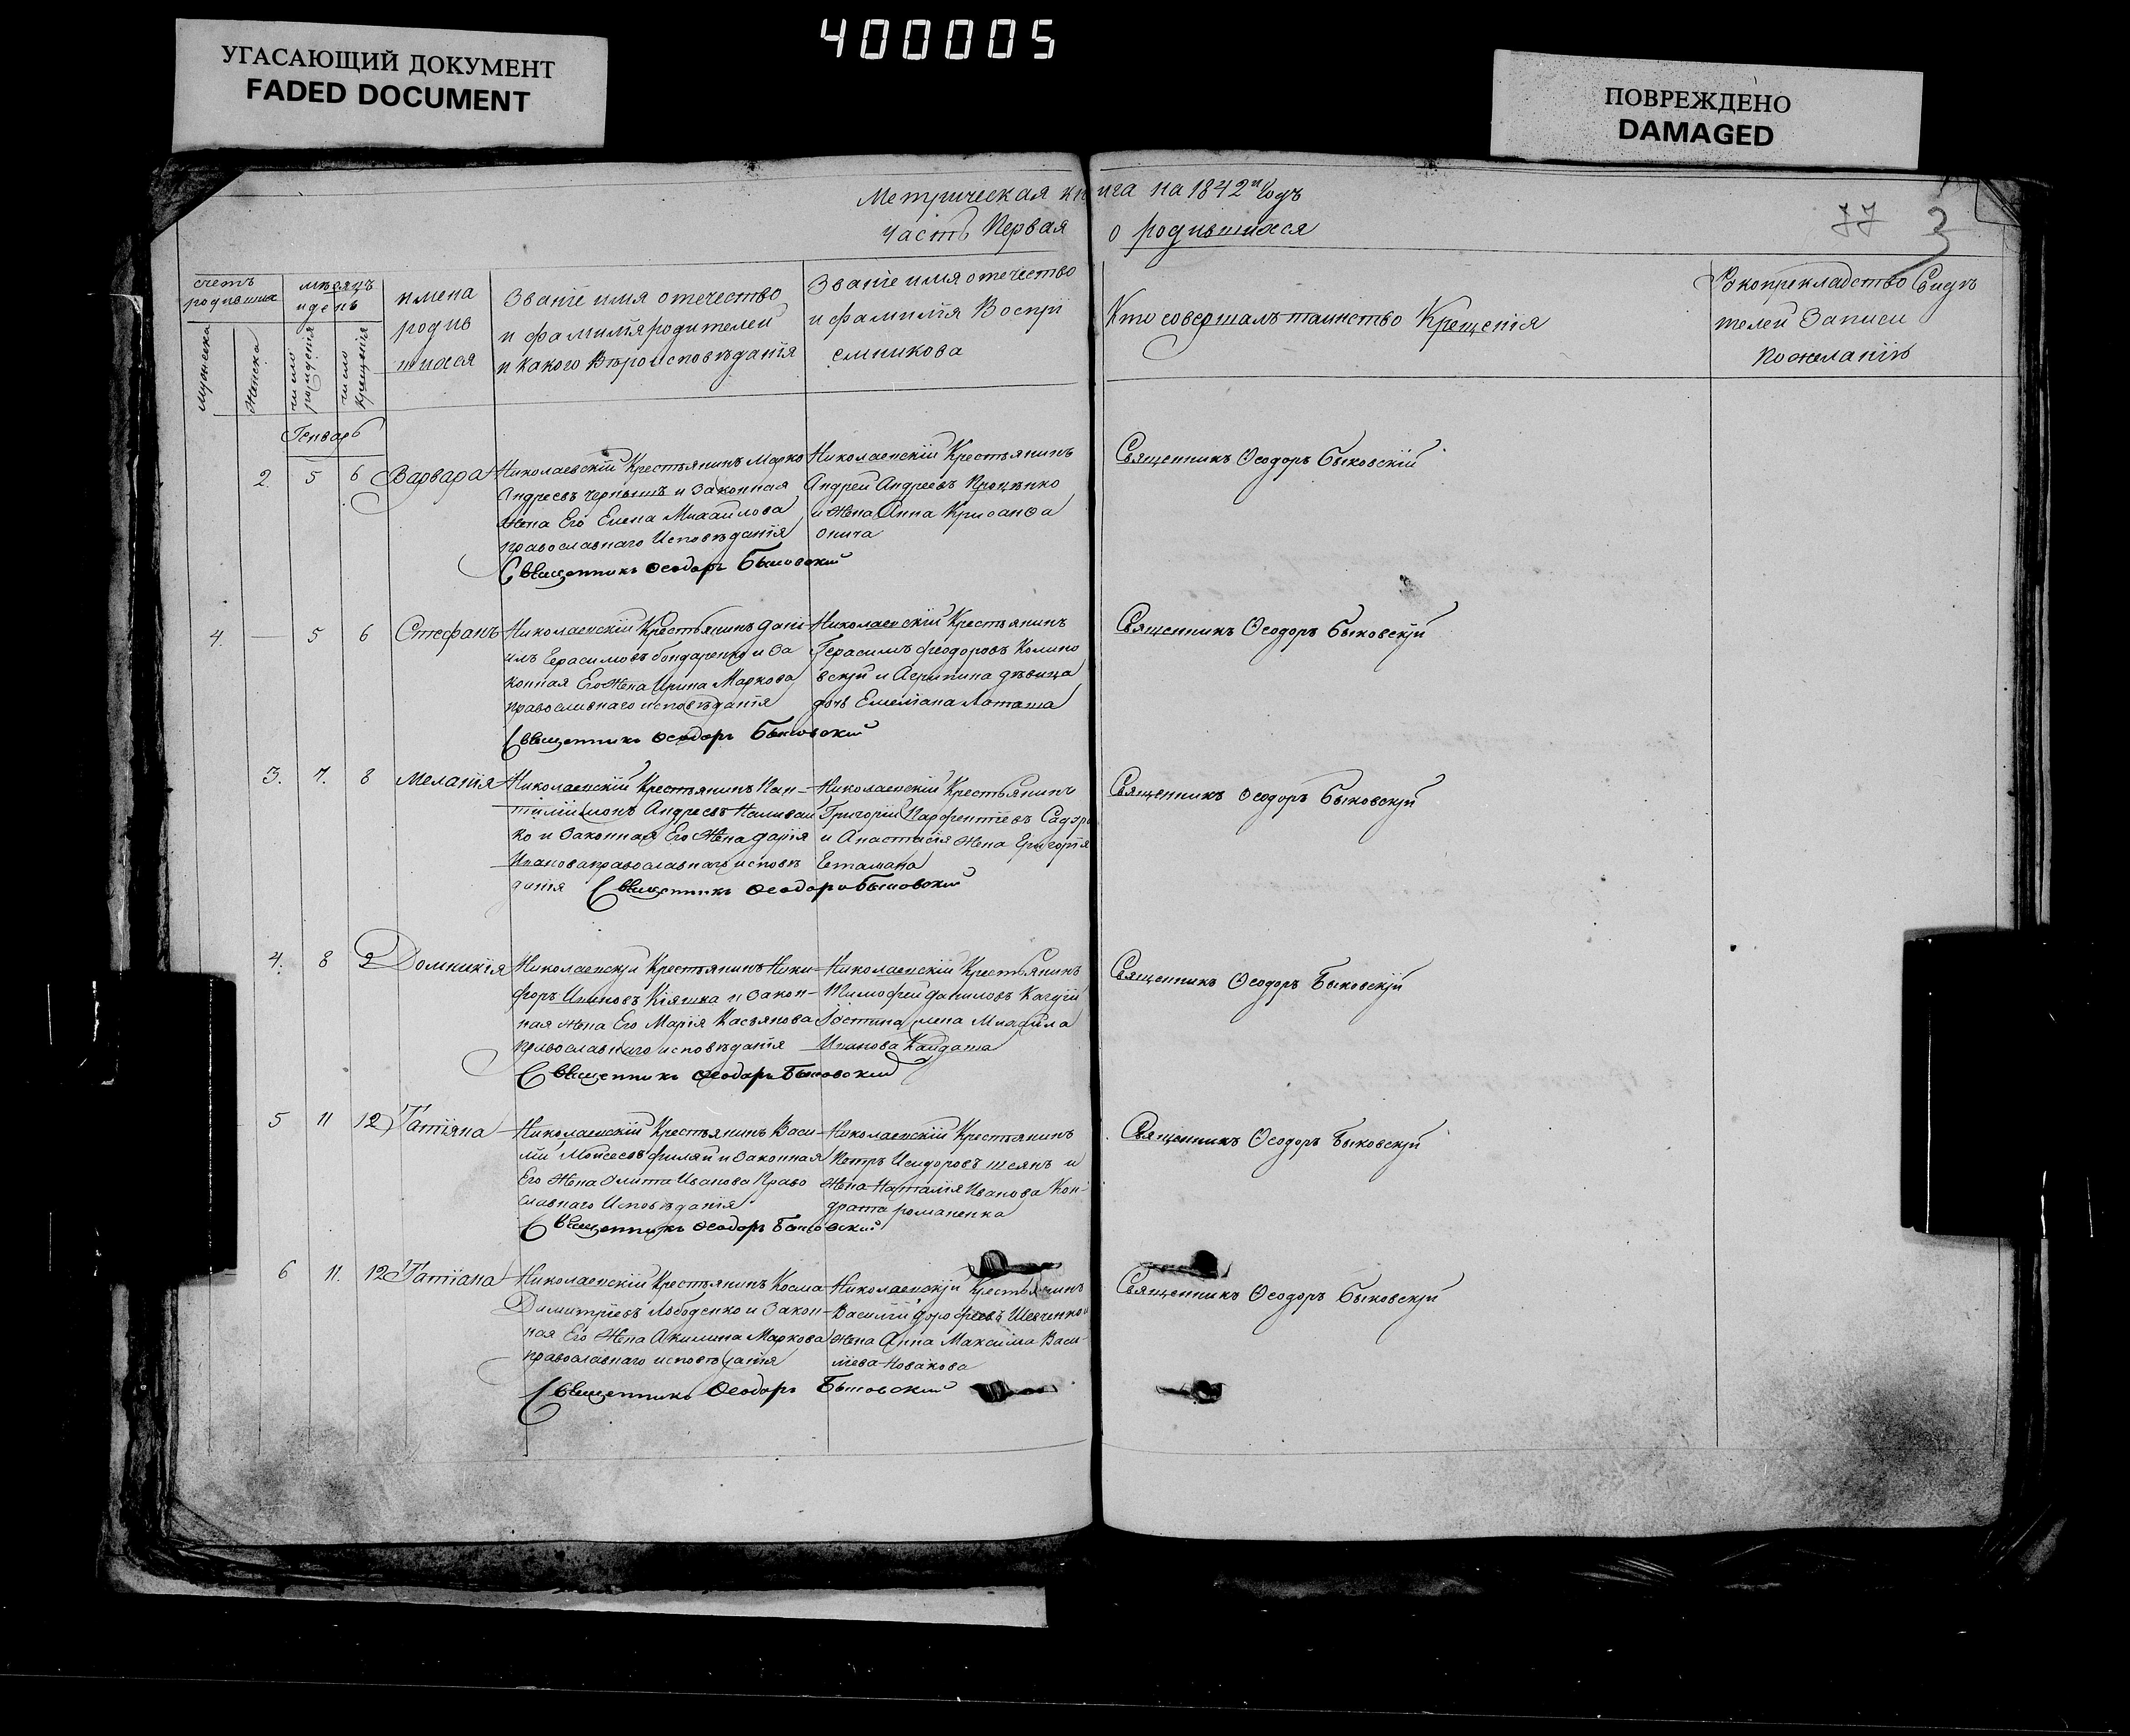 400005
УГАСАЮЩИЙ ДОКУМЕНТ
FADED DOCUMENT
ПОВРЕЖДЕНО
DAMAGED
Метрическая книга на 1842й Годъ
Часть Первая о родившихся
77 3
счетъ родившихся
мужеска
женска
мѣсяцъ и день
число рожденія
число крещенія
имена
родив
шихся
Званіе имя отечество
и фамилія родителей
и какого Вѣроисповѣданія
Званіе имя отечество
и фамилія Воспри
емниковъ
Кто совершалъ таинство Крещенія
Рукоприкладство Свидѣ
телей Записи
по желанію
Генварь
2. 5 6 Варвара
Николаевскій Крестьянинъ Марко
Андреевъ Чернышъ и Законная
Жена Его Елена Михайлова
православнаго Исповѣданія
Священникъ Ѳеодоръ Быковскій
Николаевскій Крестьянинъ
Андрей Андреевъ Проценко
и Жена Анна
Священникъ Ѳеодоръ Быковскій
4. — 5 6 Стефанъ
Николаевскій Крестьянинъ Дані
илъ Герасимовъ Бондаренко и За
конная Его Жена Ирина Маркова
православнаго исповѣданія
Священникъ Ѳеодоръ Быковскій
Николаевскій Крестьянинъ
Герасимъ Феодоровъ Колино
вскій и Агрипина дѣвица
дочь Емеліана Латаша
Священникъ Ѳеодоръ Быковскій
3. 7. 8 Меланія
Николаевскій Крестьянинъ Пан-
Андреевъ Наливай
ко и Законная Его Жена Дарія
Иванова православнаго исповѣ
данія Священникъ Ѳеодоръ Быковскій
Николаевскій Крестьянинъ
Григорій Парфентіевъ
и Анастасія Жена Григорія
Гетамана
Священникъ Ѳеодоръ Быковскій
4. 8 9 Домникія
Николаевскій Крестьянинъ Ники-
форъ Ивановъ Кіяшка и Закон-
ная Жена Его Марія Касьянова
православнаго исповѣданія
Священникъ Ѳеодоръ Быковскій
Николаевскій Крестьянинъ
Тимофей Даниловъ
Іустина жена Михайла
Иванова Кайдаша
Священникъ Ѳеодоръ Быковскій
5 11 12 Татіяна
Николаевскій Крестьянинъ Васи-
лій Моисеевъ Филяй и Законная
Его Жена Иванова Право
славнаго Исповѣданія
Священникъ Ѳеодоръ Быковскій
Николаевскій Крестьянинъ
Петръ Исидоровъ и
Жена Наталія Иванова Кон-
драта романенка
Священникъ Ѳеодоръ Быковскій
6 11. 12 Татіана
Николаевскій Крестьянинъ Косма
Димитріевъ Лободенко и Закон-
ная Его Жена Акилина Маркова
православнаго исповѣданія
Священникъ Ѳеодоръ Быковскій
Николаевскій Крестьянинъ
Василій Дорофеевъ Шевченко и
Жена Анна Максима Васи-
лева Новакова
Священникъ Ѳеодоръ Быковскій